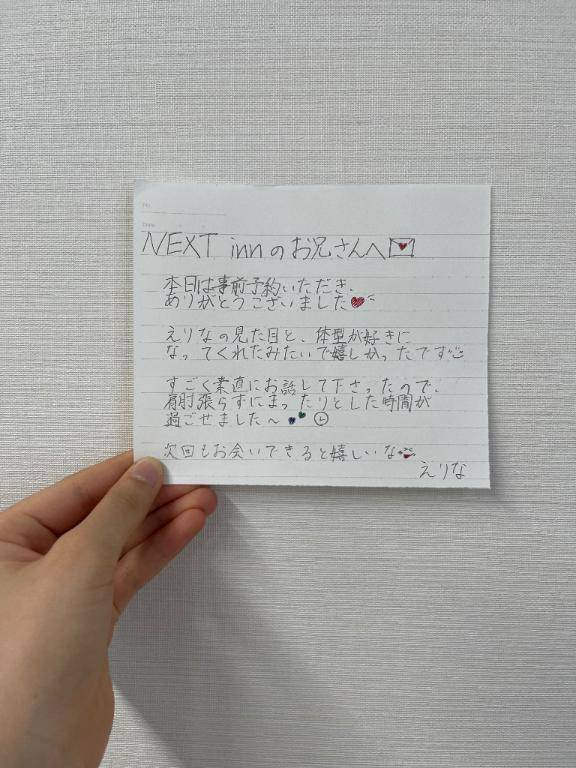 NEXT innのお兄さんへ
本日は事前予約いただき、
ありがとうございました
えりなの見た目と、体型が好きに
なってくれたみたいで嬉しかったです
すごく素直にお話して下さったので、
肩肘張らずにまったりとした時間が
過ごせました〜
次回もお会いできると嬉しいな
えりな